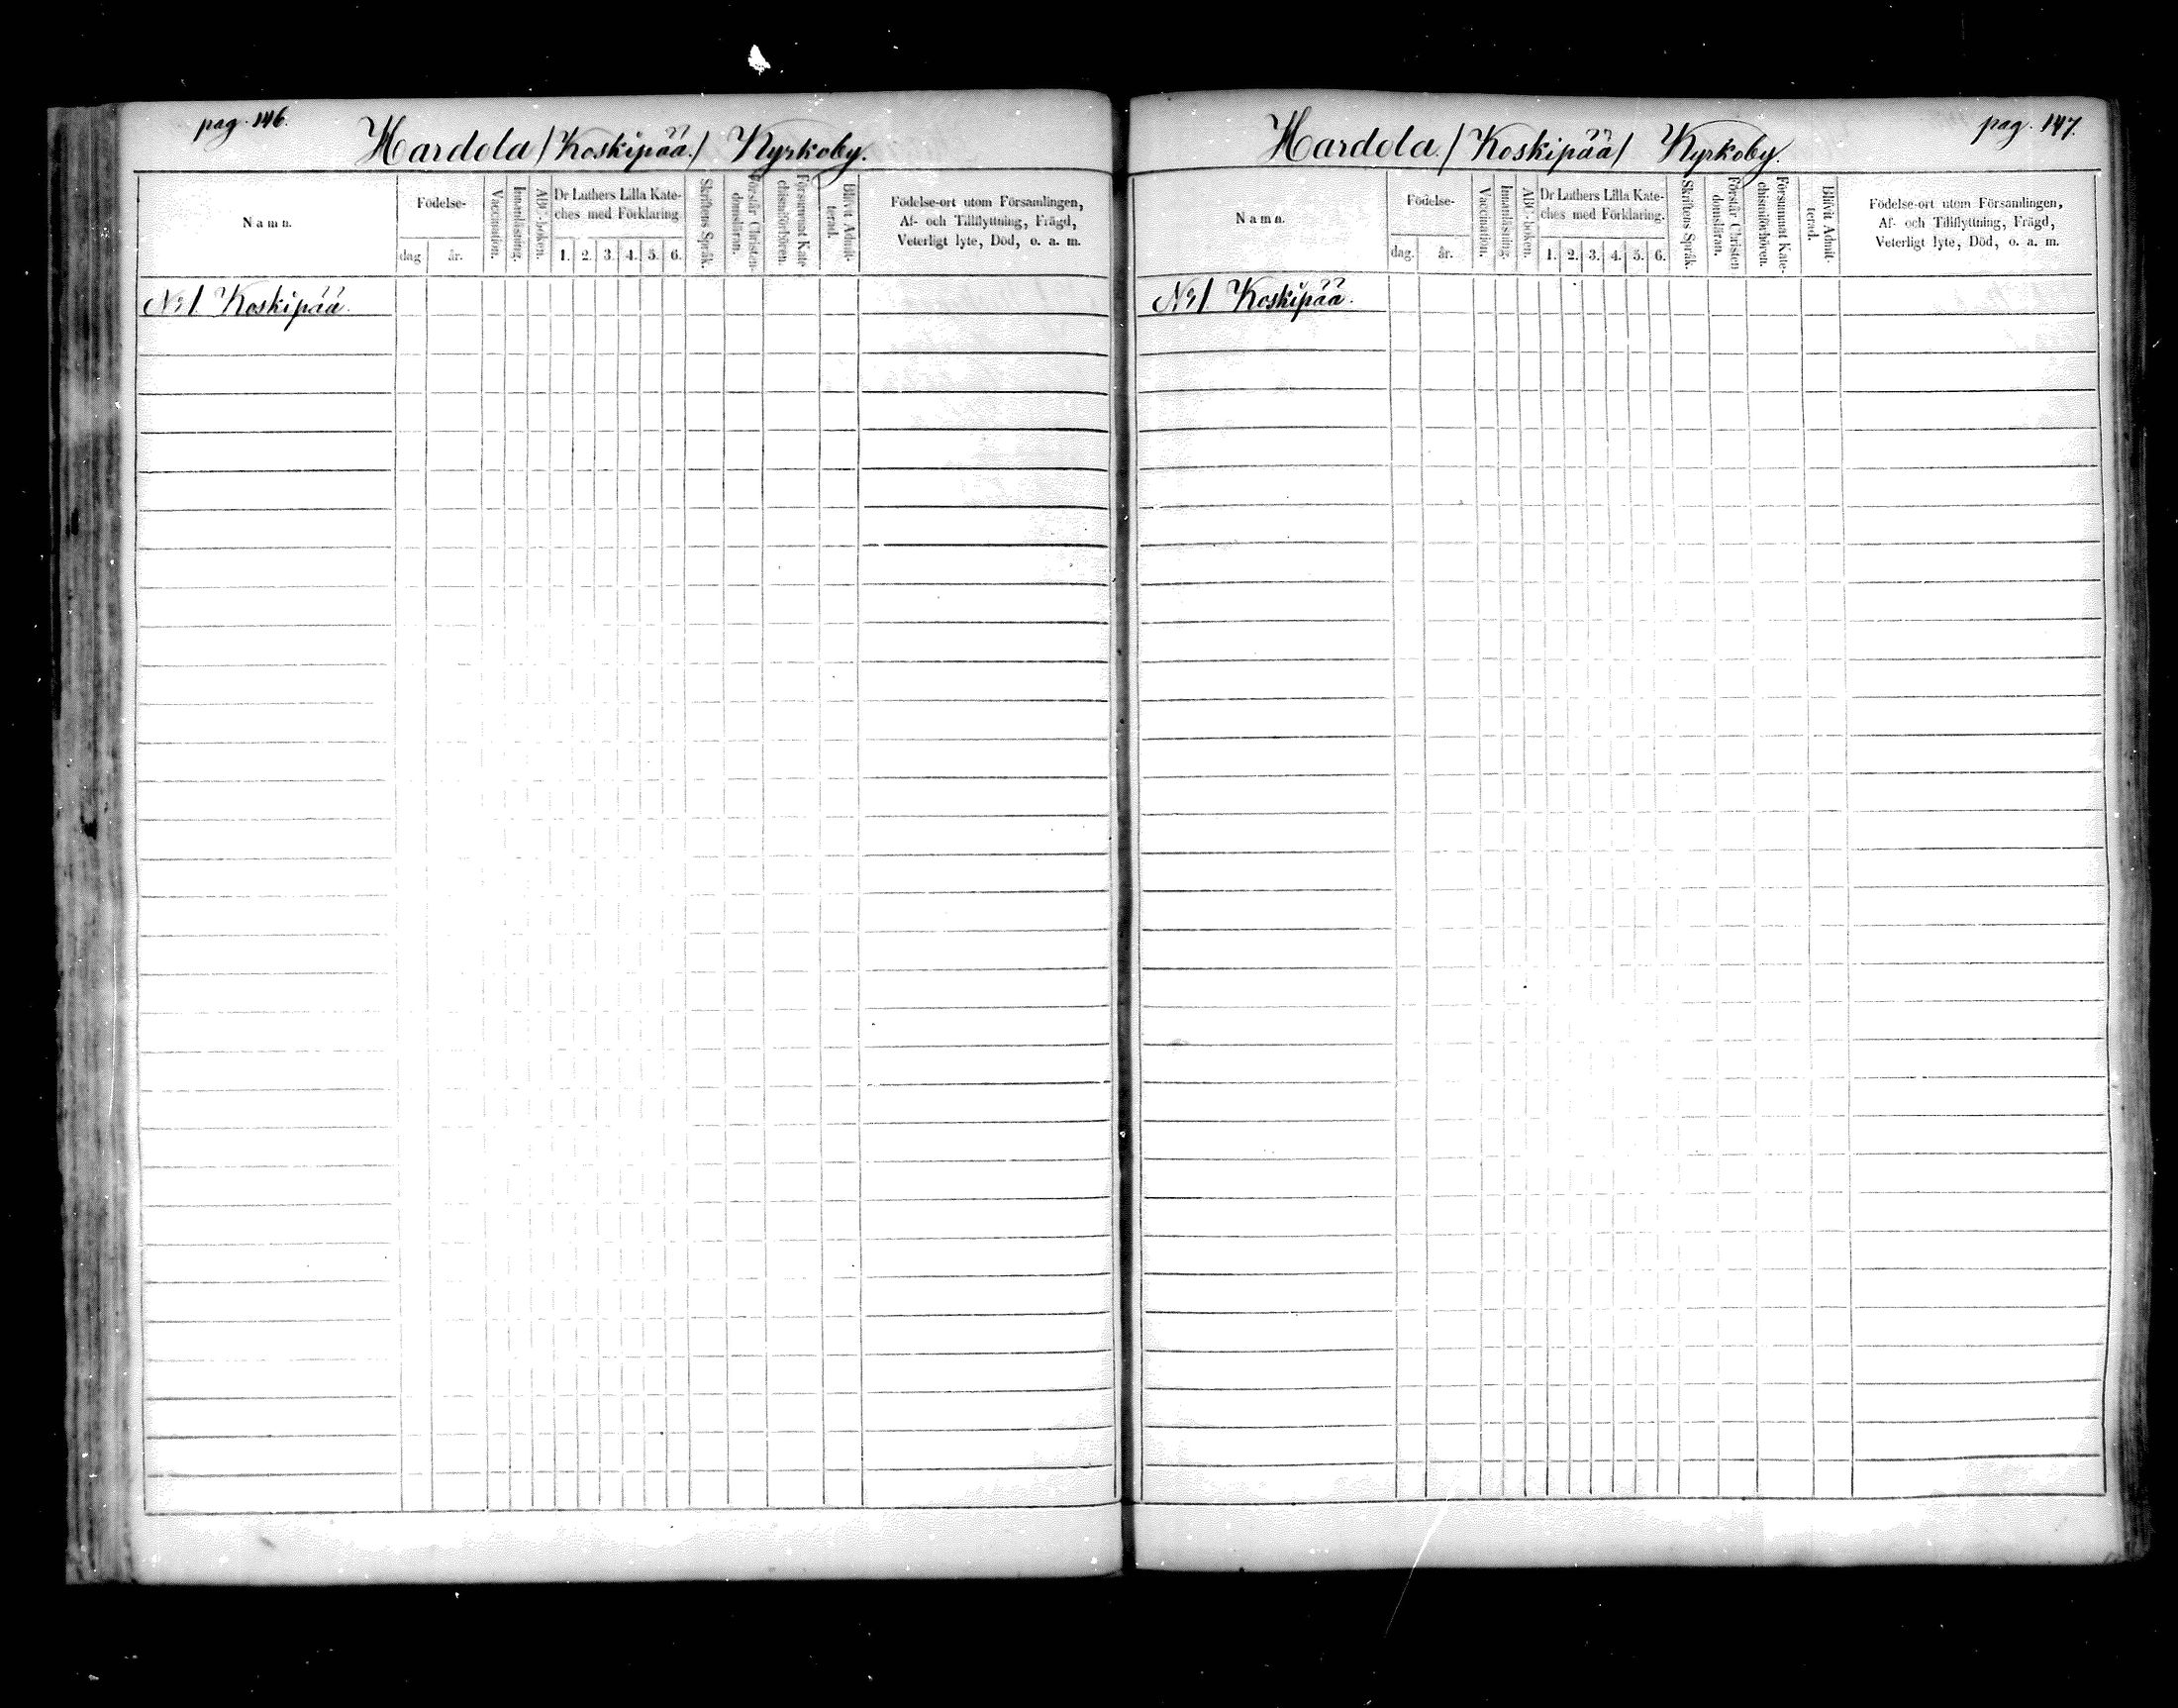 pag. 146.
Hardola /Koskipää./ Kyrkoby.
Namn.
Födelse-
dag
år.
Vaccination.
Innanläsning.
ABC-boken.
Dr Luthers Lilla Kate-
ches med Förklaring.
1. 2. 3. 4. 5. 6.
Skriftens Språk.
Förstår Christen-
domsläran.
Försummat Kate-
chismiförhören.
Blifvit Admit-
terad.
Födelse-ort utom Församlingen,
Af- och Tillflyttning, Frägd,
Veterligt lyte, Död, o. a. m.
No 1. Koskipää.
pag. 147.
Hardola. /Koskipää/ Kyrkoby.
Namn.
Födelse-
dag.
år.
Vaccination.
Innanläsning.
ABC-boken.
Dr Luthers Lilla Kate-
ches med Förklaring.
1. 2. 3. 4. 5. 6.
Skriftens Språk.
Förstår Christen-
domsläran.
Försummat Kate-
chismiförhören.
Blifvit Admit-
terad.
Födelse-ort utom Församlingen,
Af- och Tillflyttning, Frägd,
Veterligt lyte, Död, o. a. m.
No 1. Koskipää.